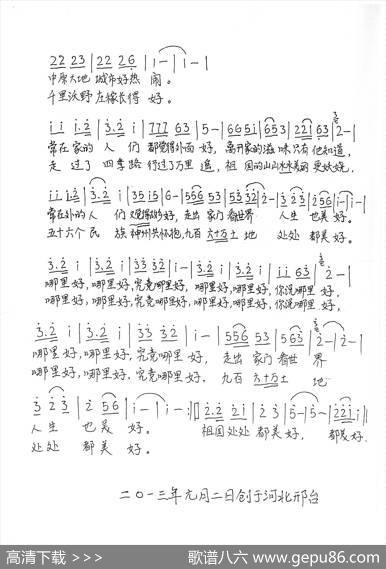 22 23 | 22 26 | i - | i - |
中原大地 城市好热 闹。
千里沃野 庄稼长得 好。
i i i.2 | 3.2 i | 777 63 | 5 - | 6 6 5 i | 6 5 3 | 2 2 1 6 3 | 2 - |
常在家的 人 们 都觉得外面 好, 离开家的滋 味只有他知道,
走 过了 四季路 行过了万里 遥, 祖 国的山山水水美丽 更妖娆,
i i i.2 | 3.2 i | 35 i5 | 6 - | 556 53 | 53 32 | 2 - | 3 23 | 256 | i - | i - |
常在外的 人 们 又觉得故乡好, 走出 家门 看世界 人生 也美 好。
五十六个民 族 神州共怀抱, 九百 六十万土 地 处处 都美 好。
3.2 i | 3.2 i | 33 32 | i - | 3.2 i | 3.2 i | i i 63 | 2 - |
哪里 好, 哪里 好, 究竟哪里好, 哪里 好, 哪里 好, 你说哪里 好,
哪里 好, 哪里 好, 究竟哪里好, 哪里 好, 哪里 好, 你说哪里 好,
3.2 i | 3.2 i | 33 32 | i - | 556 53 | 563 | 2 - | 2 - |
哪里 好, 哪里 好, 究竟哪里 好, 走出 家门 看世 界
哪里 好, 哪里 好, 究竟哪里 好, 九百 六十万土 地
3 23 | 2 56 | i - | i - :|| 2.2 2i | 2 3 | 5 - | 5 - | 22i | i - |
人生 也美 好。 祖国处处 都美 好, 都美好。
处处 都美 好。
二〇一三年元月二日创于河北邢台
高清下载 >>>
歌谱八六 www.gepu86.com